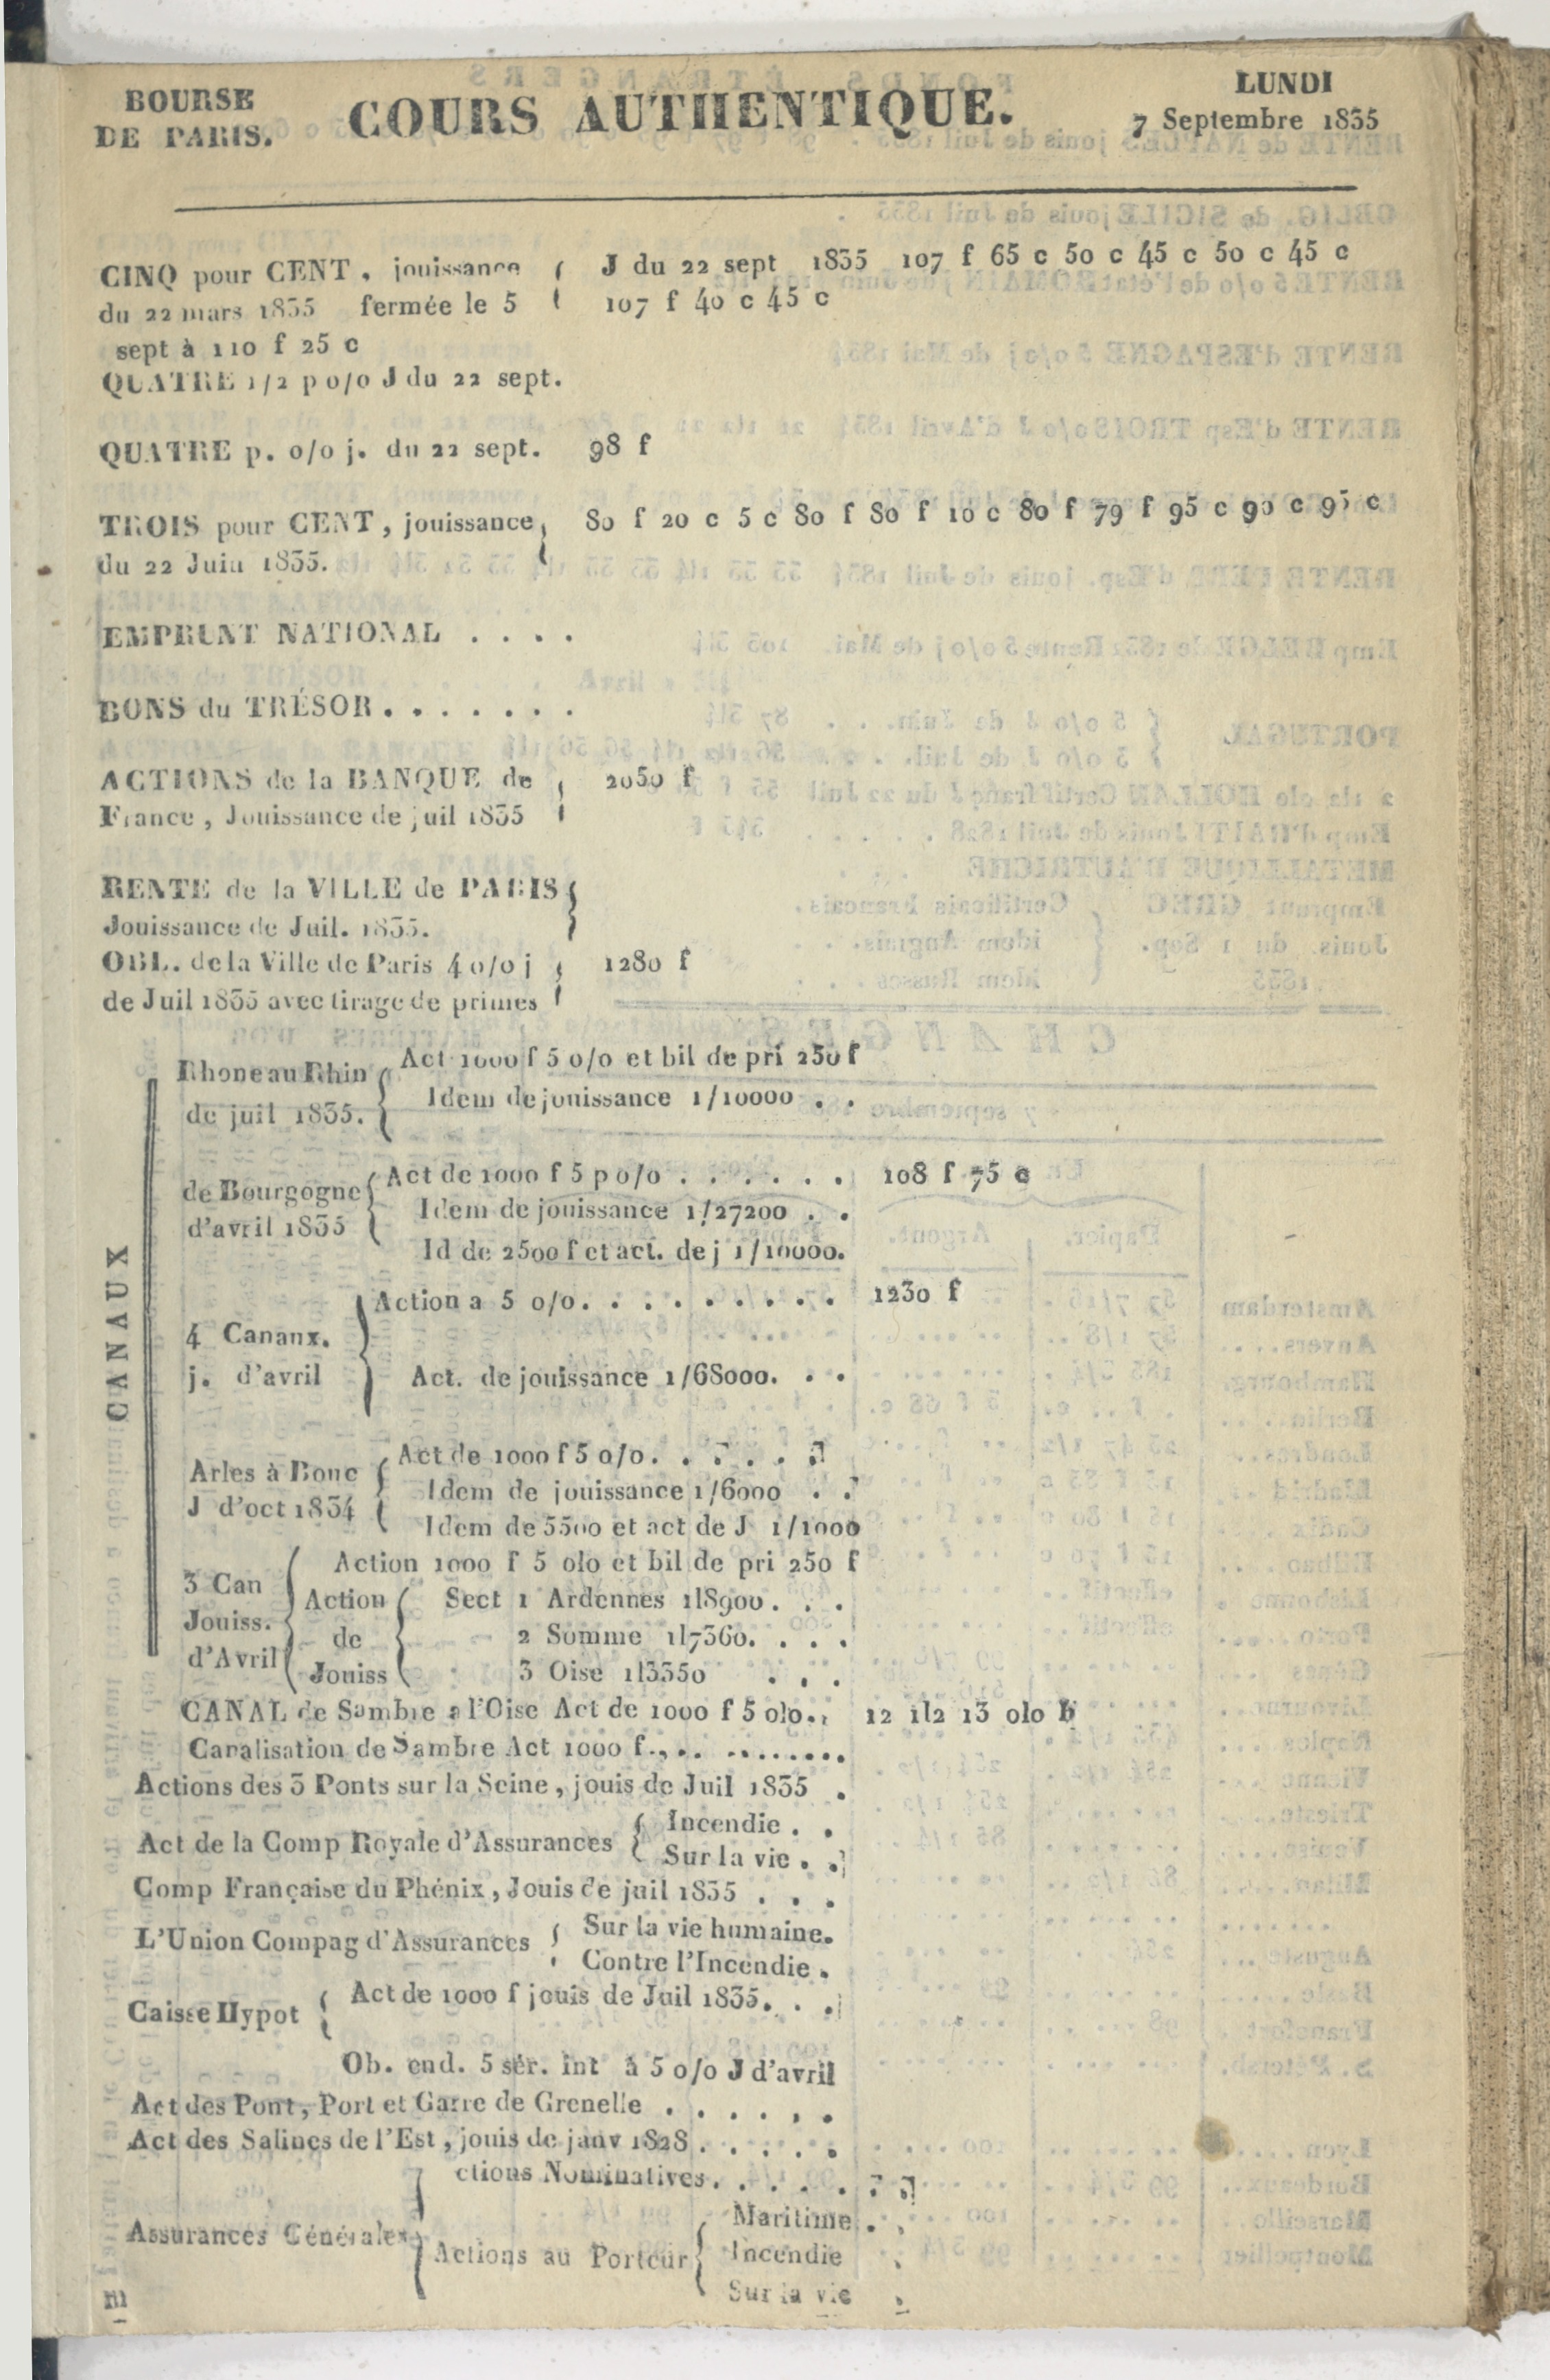 BOURSE
DE PARIS.
COURS AUTHENTIQUE.
LUNDI
7 Septembre 1835
CINQ pour CENT, jouissance
J du 22 sept 1835 107 f 65 c 50 c 45 c 50 c 45 c
du 22 mars 1835 fermée le 5
107 f 40 c 45 c
sept à 110 f 25 c
QUATRE 1/2 p o/o J du 22 sept.
QUATRE p. o/o j. du 22 sept. 98 f
TROIS pour CENT, jouissance 80 f 20 c 5 c 80 f 80 f 10 c 80 f 79 f 95 c 90 c 95 c
du 22 Juin 1835.
EMPRUNT NATIONAL . . . .
BONS du TRÉSOR . . . . . . .
ACTIONS de la BANQUE de 2050 f
France, Jouissance de juil 1835
RENTE de la VILLE de PARIS
Jouissance de Juil. 1835.
OBL. de la Ville de Paris 4 o/o j 1280 f
de Juil 1835 avec tirage de primes
CANAUX
Rhone au Rhin
de juil 1835.
Act 1000 f 5 o/o et bil de pri 250 f
Idem de jouissance 1/10000 . .
de Bourgogne
d'avril 1835
Act de 1000 f 5 p o/o . . . . . . 108 f 75 c
Idem de jouissance 1/27200 . .
Id de 2500 f et act. de j 1/10000.
4 Canaux.
j. d'avril
Action a 5 o/o. . . . . . . . . 1230 f
Act. de jouissance 1/68000. . .
Arles à Bouc
J d'oct 1834
Act de 1000 f 5 o/o. . . . . .
Idem de jouissance 1/6000 . .
Idem de 5500 et act de J 1/1000
3 Can
Jouiss.
d'Avril
Action 1000 f 5 olo et bil de pri 250 f
Action
de
Jouiss
Sect 1 Ardennes 1l8900. . .
2 Somme 1l7360. . . .
3 Oise 1l3350 . . .
CANAL de Sambre a l'Oise Act de 1000 f 5 olo. 12 1l2 13 olo b
Canalisation de Sambre Act 1000 f.,.. ........
Actions des 3 Ponts sur la Seine, jouis de Juil 1835 .
Act de la Comp Royale d'Assurances
Incendie . .
Sur la vie . .
Comp Française du Phénix, Jouis de juil 1835 . . .
L'Union Compag d'Assurances
Sur la vie humaine.
Contre l'Incendie .
Caisse Hypot
Act de 1000 f jouis de Juil 1835. . .
Ob. end. 5 sér. int à 5 o/o J d'avril
Act des Pont, Port et Garre de Grenelle . . . . . .
Act des Salines de l'Est, jouis de janv 1828 . . . . .
Assurances Générales
ctions Nominatives. . . . . . .
Actions au Porteur
Maritime . .
Incendie .
Sur la vie .
m